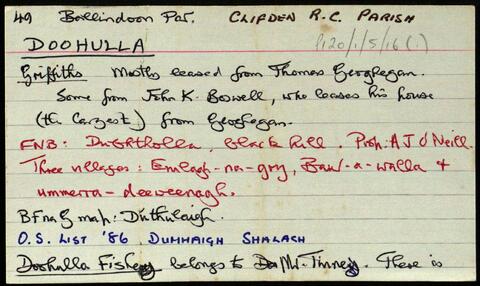 49 Ballindoon Par. CLIFDEN R.C. PARISH
P120/1/5/16(1)
DOOHULLA
Griffiths Mostly leased from Thomas Geoghegan.
Some from John K. Boswell, who leases his house
(the largest) from Geoghegan.
FNB: Dubhtholla, black hill. Prop. A J O'Neill.
Three villages: Emlagh-na-gry, Baur-a-walla &
Ummerra-deeveenagh.
BFnaG map: Dúthulaigh.
O.S. LIST '86 DUMHAIGH SHALACH
Doohulla Fishery belongs to Mr. Tinney. There is